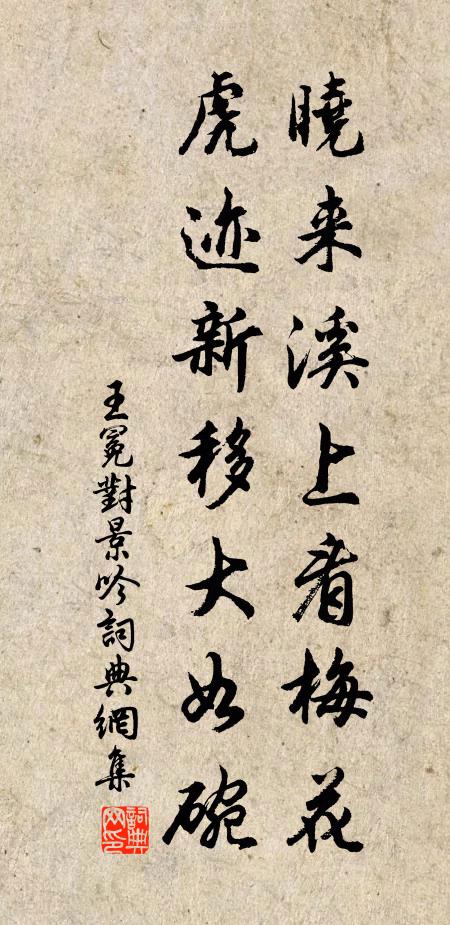 曉来溪上看梅花
虎迹新移大如碗
王冕對景吟詞典網集
詞典网印